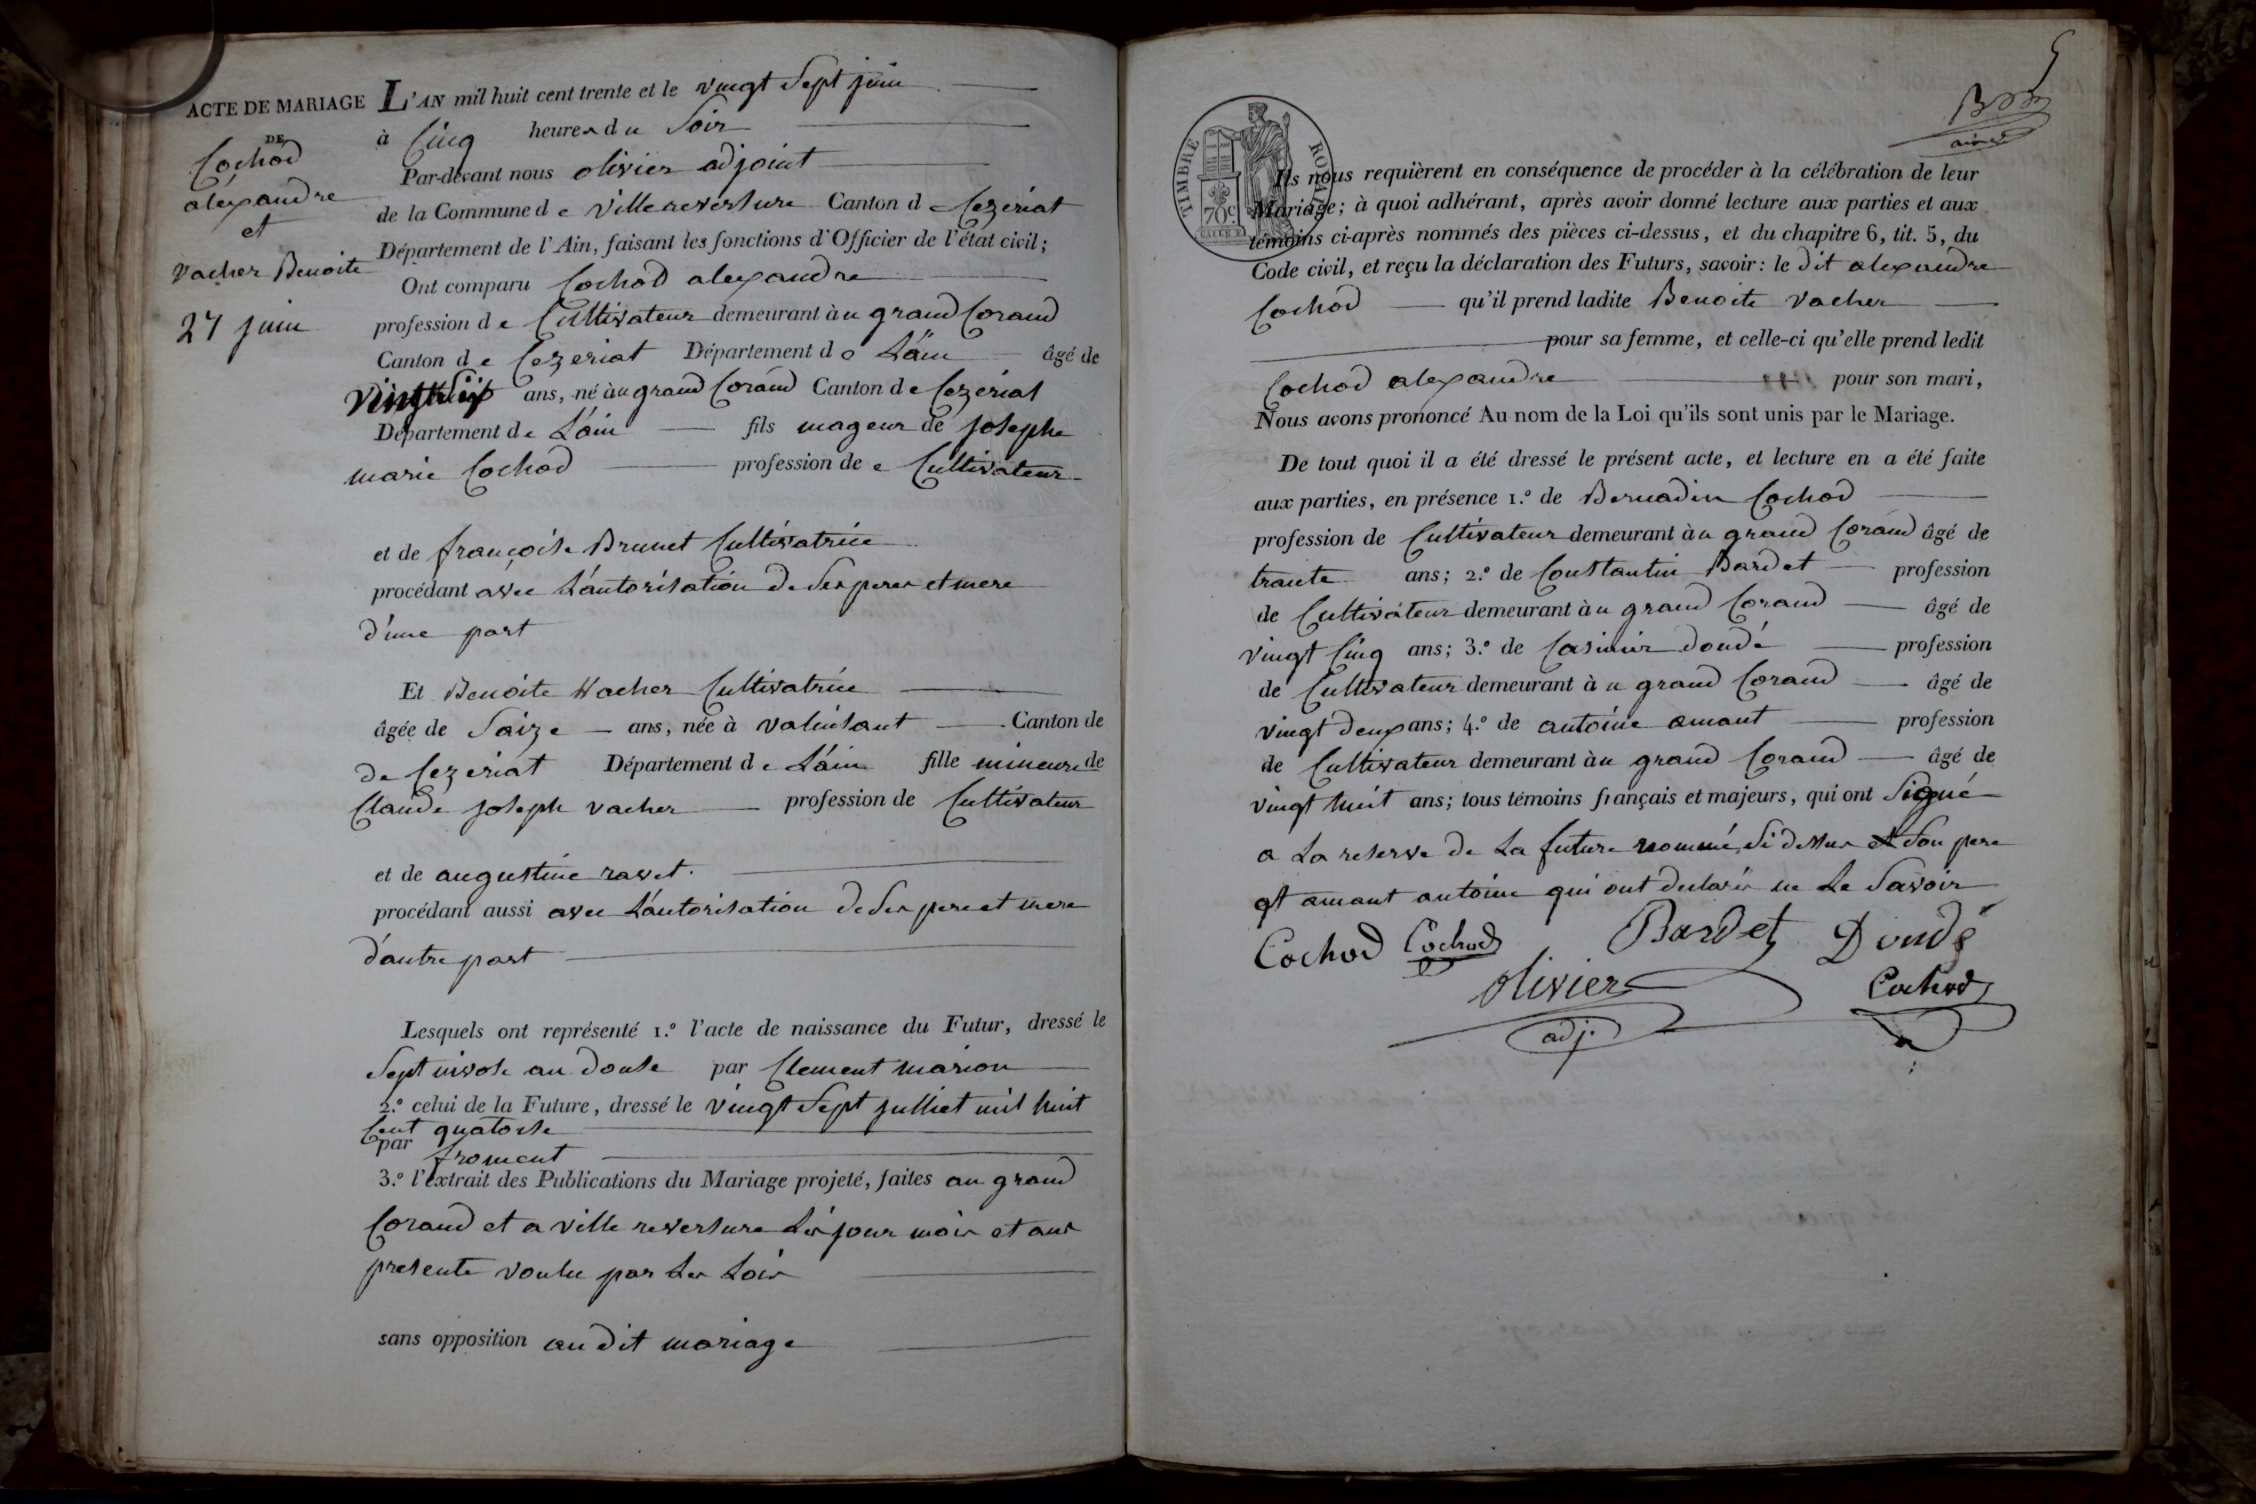 ACTE DE MARIAGE
DE
Cochod
alexandre
et
vacher Benoite
27 juin
L'AN mil huit cent trente et le vingt Sept juin
à Cinq heures du Soir
Par-devant nous olivier adjoint
de la Commune de Villereversure Canton de Cezeriat
Département de l'Ain, faisant les fonctions d'Officier de l'état civil;
Ont comparu Cochod alexandre
profession de Cultivateur demeurant àu grand Corand
Canton de Cezeriat Département de L'äin âgé de
ans, né àu grand Corand Canton de Cezériat
Département de L'äin fils mageur de josephe
marie Cochod profession de e Cultivateur
et de françoise Brunet Cultivatrice
procédant avec L'autorisation de Ses peres et mere
d'une part
Et Benoite Vacher Cultivatrice
âgée de Saize ans, née à valuisant Canton de
de Cezeriat Département de L'äin fille mineure de
Claude joseph vacher profession de Cultivateur
et de augustine ravet.
procédant aussi avec L'autorisation de Ses pere et mere
d'autre part
Lesquels ont représenté 1.º l'acte de naissance du Futur, dressé le
Sept nivose an douse par Clement Marion
2.º celui de la Future, dressé le vingt Sept julliet mil huit
Cent quatorse
par froment
3.º l'extrait des Publications du Mariage projeté, faites au grand
Corand et a ville reversure Les jour mois et ans
presente voulu par Les Lois
sans opposition au dit mariage
5
TIMBRE ROYAL
70c
Ils nous requièrent en conséquence de procéder à la célébration de leur
Mariage; à quoi adhérant, après avoir donné lecture aux parties et aux
témoins ci-après nommés des pièces ci-dessus, et du chapitre 6, tit. 5, du
Code civil, et reçu la déclaration des Futurs, savoir: le dit alexandre
Cochod qu'il prend ladite Benoite vacher
pour sa femme, et celle-ci qu'elle prend ledit
Cochod alexandre pour son mari,
Nous avons prononcé Au nom de la Loi qu'ils sont unis par le Mariage.
De tout quoi il a été dressé le présent acte, et lecture en a été faite
aux parties, en présence 1.º de Bernadin Cochod
profession de Cultivateur demeurant àu grand Corand âgé de
trante ans; 2.º de Constantin Bardet profession
de Cultivateur demeurant àu grand Corand âgé de
vingt Cinq ans; 3.º de Casimir doudé profession
de Cultivateur demeurant à u grand Corand âgé de
vingt deux ans; 4.º de antoine amant profession
de Cultivateur demeurant àu grand Corand âgé de
vingt huit ans; tous témoins français et majeurs, qui ont Signé
a La reserve de La future nommé Si dessus et Son pere
et amant antoine qui ont declarés ne Le Savoir
Cochod Cochod Bardet Doudé
olivier Cochod
adj.